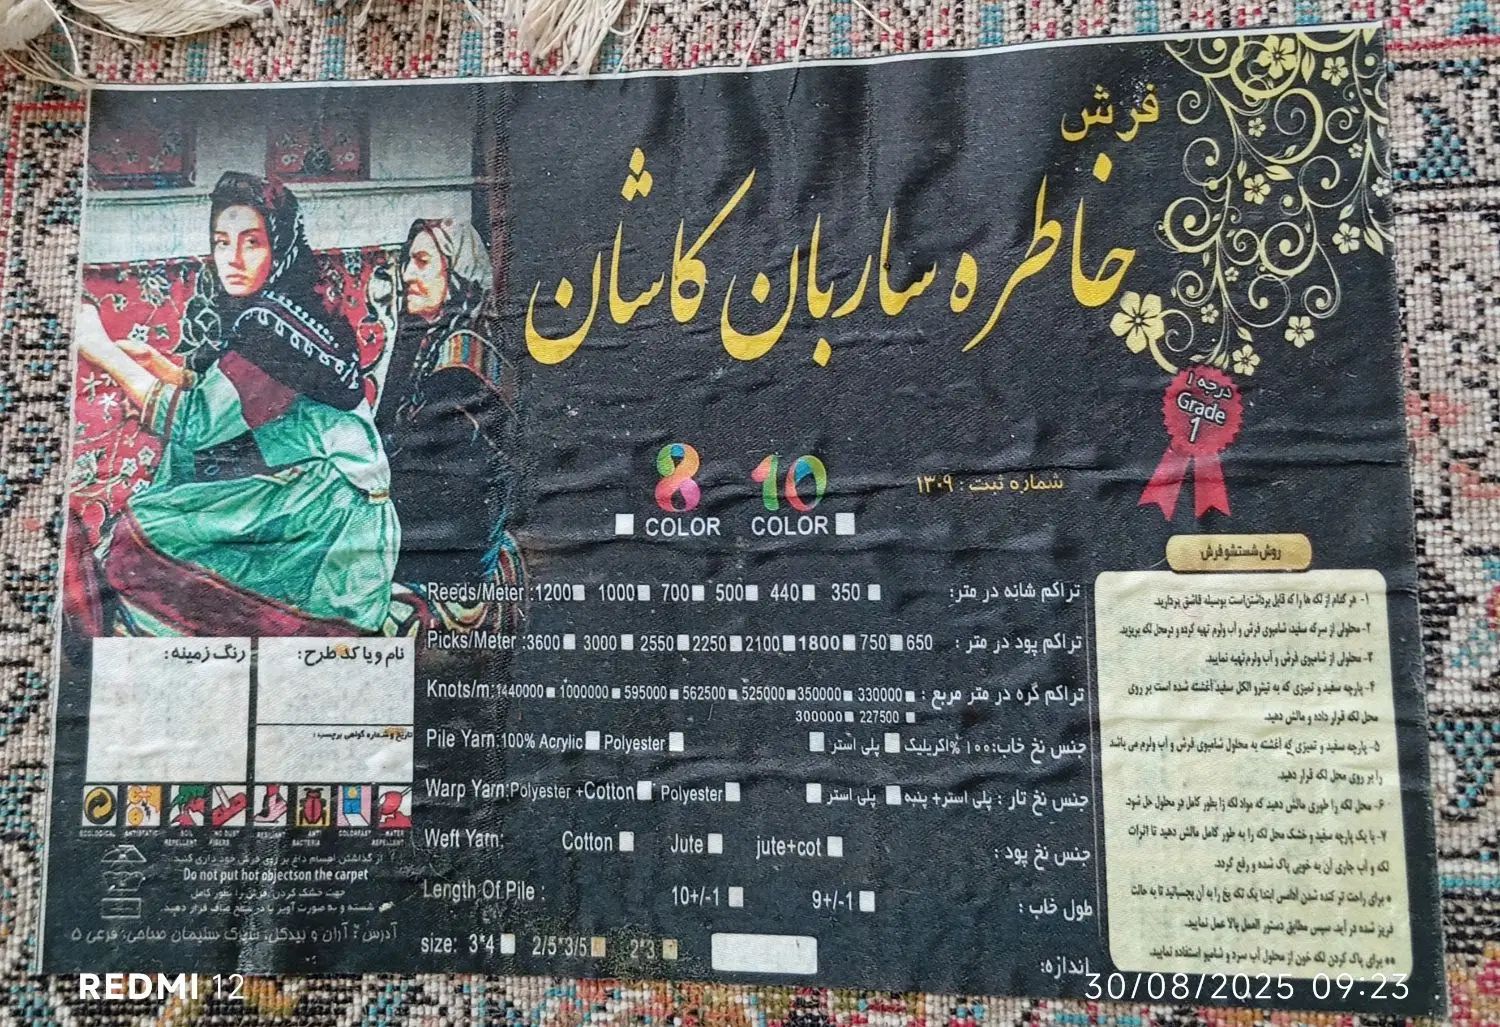 فرش
خاطره ساربان کاشان
درجه ۱
Grade
1
8 COLOR
10 COLOR
شماره ثبت : ۱۳۰۹
Reeds/Meter :1200 1000 700 500 440 350 تراکم شانه در متر:
Picks/Meter :3600 3000 2550 2250 2100 1800 750 650 تراکم پود در متر :
Knots/m:1440000 1000000 595000 562500 525000 350000 330000 تراکم گره در متر مربع :
300000 227500
Pile Yarn:100% Acrylic Polyester پلی استر ۱۰۰%اکریلیک جنس نخ خاب:
Warp Yarn:Polyester +Cotton Polyester پلی استر پلی استر+ پنبه جنس نخ تار :
Weft Yarn: Cotton Jute jute+cot جنس نخ پود :
Length Of Pile : 10+/-1 9+/-1 طول خاب :
size: 3*4 2/5*3/5 2*3 اندازه:
نام و یا کد طرح:
رنگ زمینه:
تاریخ و شماره گواهی برچسب :
ECOLOGICAL
ANTISTATIC
SOIL REPELLENT
NO DUST FIBERS
RESILIANT
ANTI BACTERIA
COLORFAST
WATER REPELLENT
از گذاشتن اجسام داغ بر روی فرش خود داری کنید
Do not put hot objectson the carpet
جهت خشک کردن، فرش را بطور کامل
شسته و به صورت آویز یا در سطح صاف قرار دهید.
آدرس : آران و بیدگل، شهرک سلیمان صباحی، فرعی ۵
روش شستشو فرش
۱- هر کدام از لکه ها را که قابل برداشتن است بوسیله قاشق بردارید.
۲- محلولی از سرکه سفید، شامپوی فرش و آب ولرم تهیه کرده و در محل لکه بریزید.
۳- محلولی از شامپوی فرش و آب ولرم تهیه نمایید.
۴- پارچه سفید و تمیزی که به نیترو الکل سفید آغشته شده است بر روی
محل لکه قرار داده و مالش دهید.
۵- پارچه سفید و تمیزی که آغشته به محلول شامپوی فرش و آب ولرم می باشد
را بر روی محل لکه قرار دهید.
۶- محل لکه را طوری مالش دهید که مواد لکه زا بطور کامل در محلول حل شود.
۷- با یک پارچه سفید و خشک محل لکه را به طور کامل مالش دهید تا اثرات
لکه و آب جاری آن به خوبی پاک شده و رفع گردد.
* برای راحت تر کنده شدن آدامس ابتدا یک تکه یخ را به آن بچسبانید تا به حالت
فریز شده در آید. سپس مطابق دستور العمل بالا عمل نمایید.
** برای پاک کردن لکه خون از محلول آب سرد و شامپو استفاده نمایید.
REDMI 12
30/08/2025 09:23